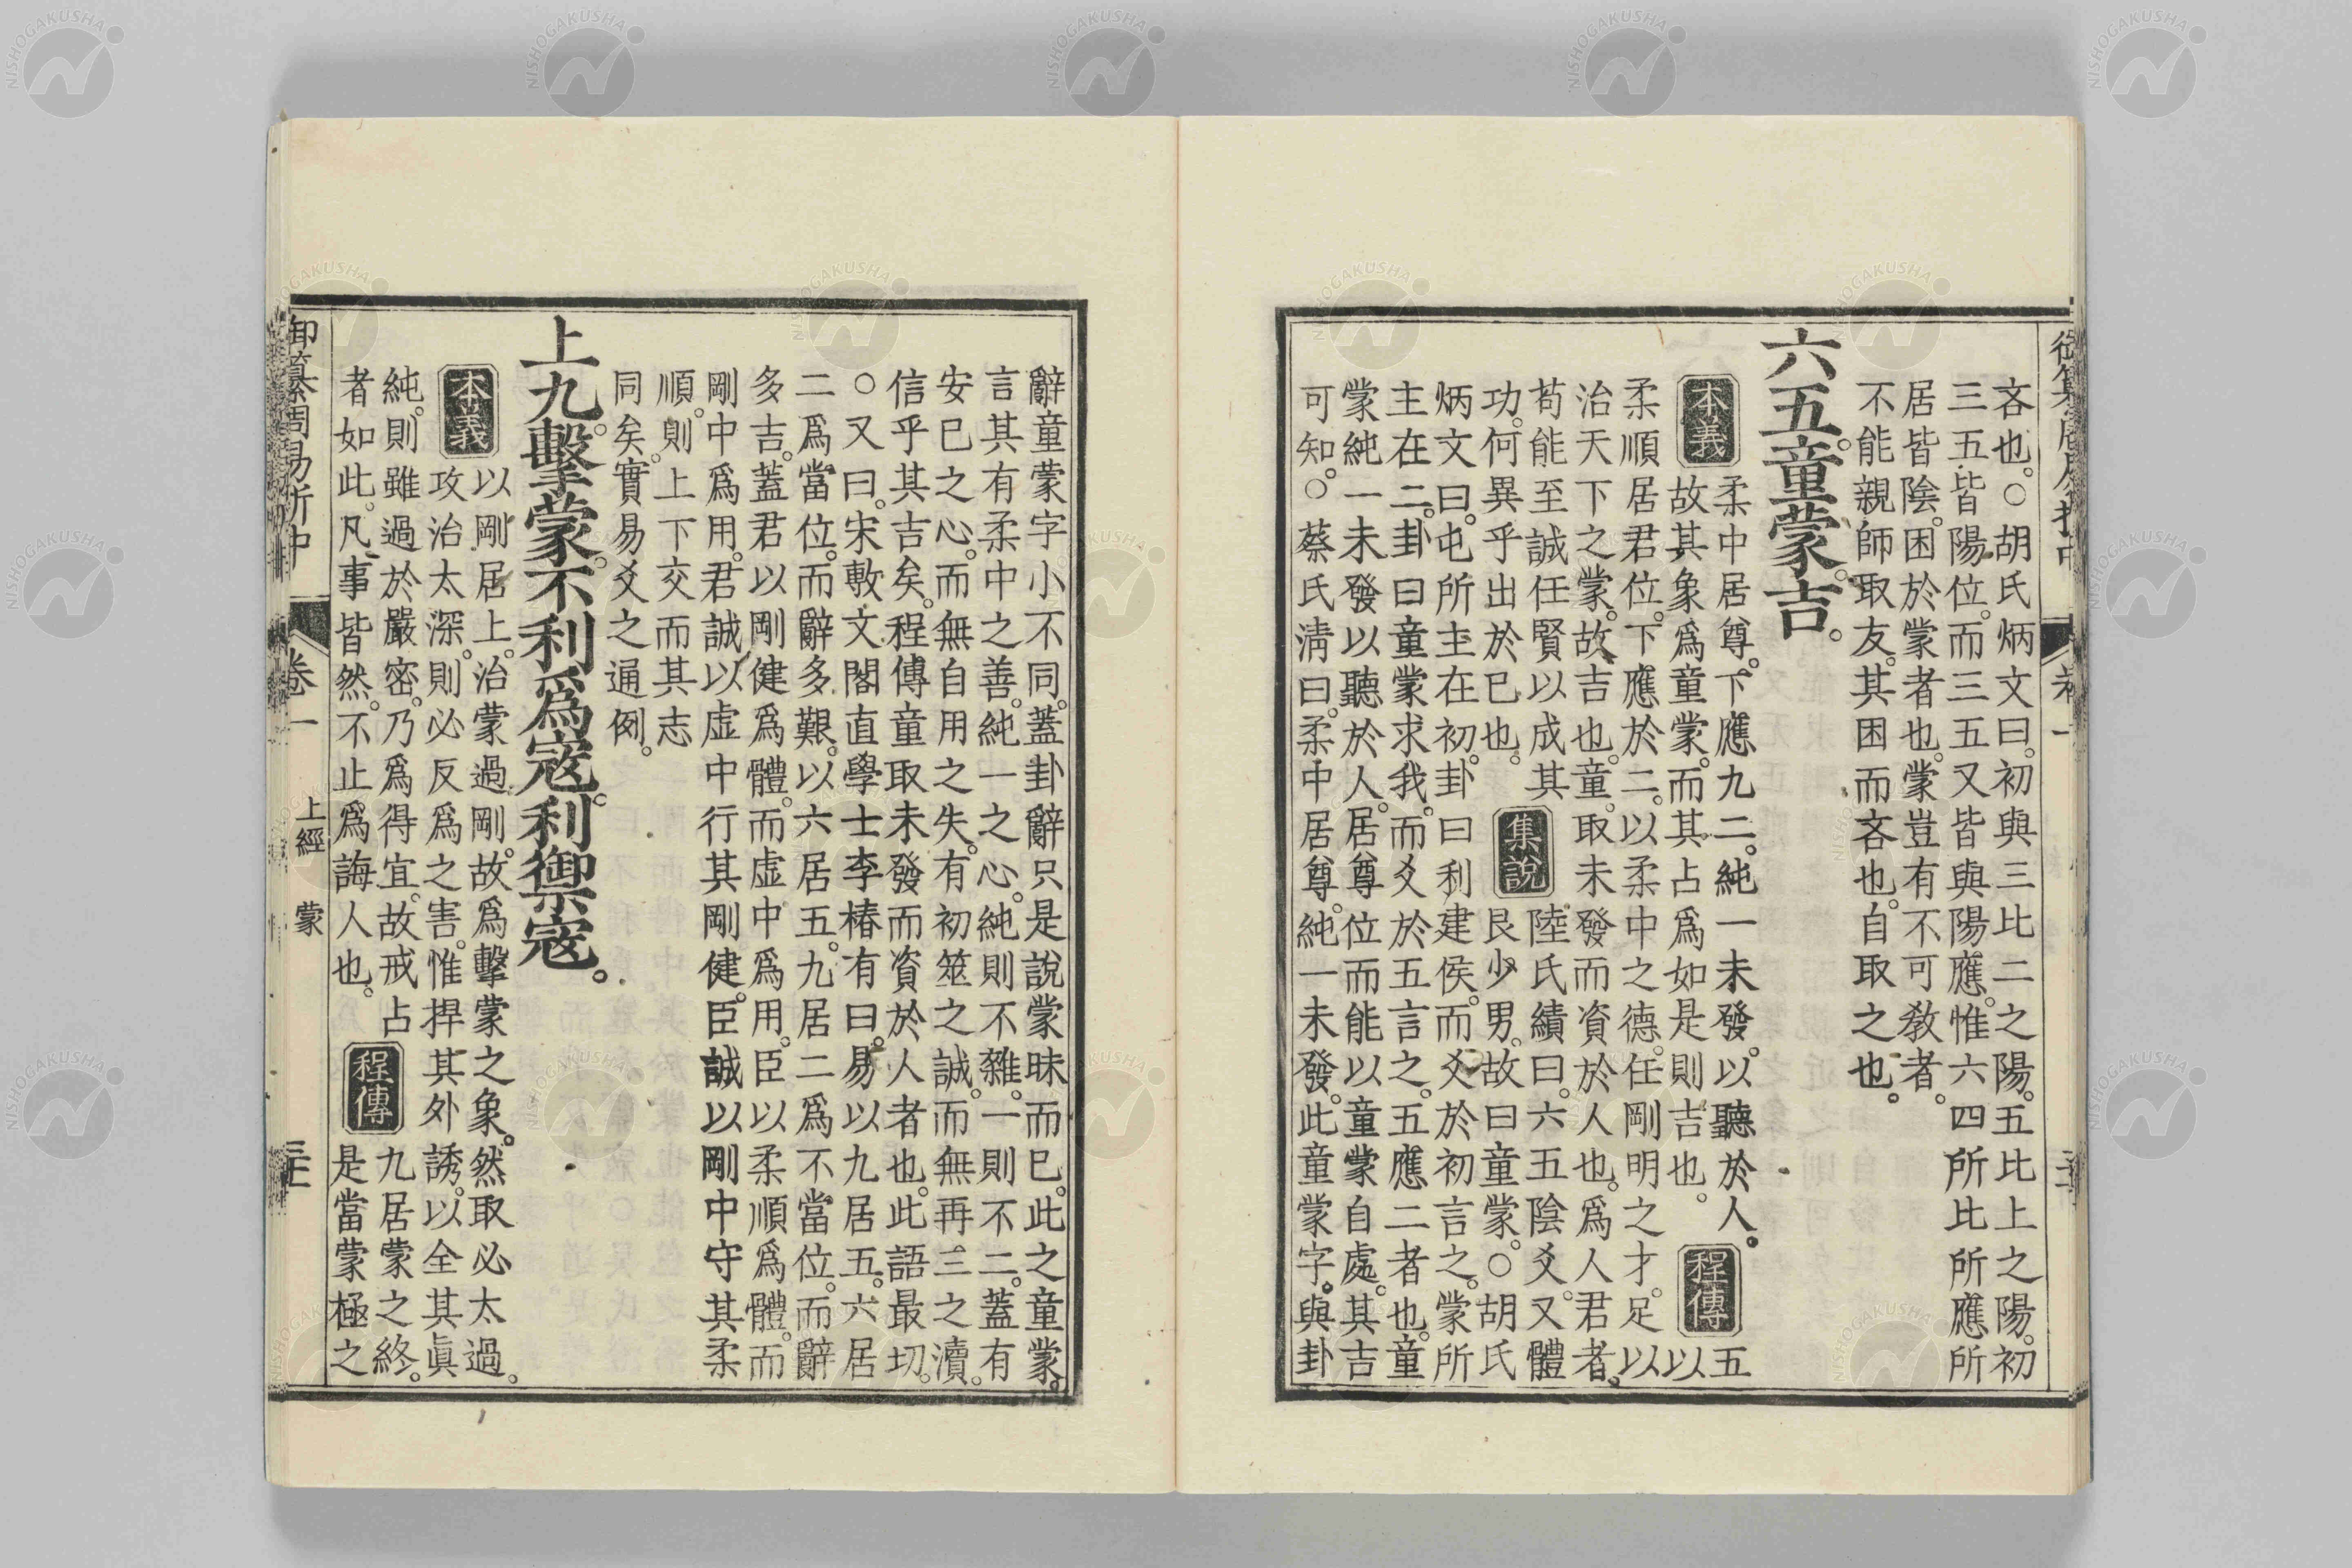 吝也。○胡氏炳文曰。初與三比二之陽。五比上之陽。初
三五皆陽位。而三五又皆與陽應。惟六四所比所應所
居皆陰。困於蒙者也。蒙豈有不可敎者。
不能親師取友。其困而吝也。自取之也。
六五。童蒙。吉。
本義
柔中居尊。下應九二。純一未發。以聽於人。
故其象爲童蒙。而其占爲如是則吉也。
程傳
五以
柔順居君位。下應於二。以柔中之德。任剛明之才。足以
治天下之蒙。故吉也。童。取未發而資於人也。爲人君者。
苟能至誠任賢以成其
功。何異乎出於已也。
集說
陸氏績曰。六五陰爻。又體
艮少男。故曰童蒙。○胡氏
炳文曰。屯所主在初。卦曰利建侯。而爻於初言之。蒙所
主在二。卦曰童蒙求我。而爻於五言之。五應二者也。童
蒙純一未發以聽於人。居尊位而能以童蒙自處。其吉
可知。○蔡氏淸曰。柔中居尊。純一未發。此童蒙字。與卦
辭童蒙字小不同。蓋卦辭只是說蒙昧而已。此之童蒙。
言其有柔中之善。純一之心。純則不雜。一則不二。蓋有
安已之心。而無自用之失。有初筮之誠。而無再三之瀆。
信乎其吉矣。程傳童取未發而資於人者也。此語最切。
○又曰。宋敷文閣直學士李椿有曰。易以九居五。六居
二爲當位。而辭多艱。以六居五。九居二爲不當位。而辭
多吉。蓋君以剛健爲體。而虛中爲用。臣以柔順爲體。而
剛中爲用。君誠以虛中行其剛健。臣誠以剛中守其柔
順。則上下交而其志
同矣。實易爻之通例。
上九。擊蒙。不利爲寇。利禦寇。
本義
以剛居上。治蒙過剛。故爲擊蒙之象。然取必太過。
攻治太深。則必反爲之害。惟捍其外誘。以全其眞
純。則雖過於嚴密。乃爲得宜。故戒占
者如此。凡事皆然。不止爲誨人也。
程傳
九居蒙之終。
是當蒙極之
御纂周易折中
卷一
上經
蒙